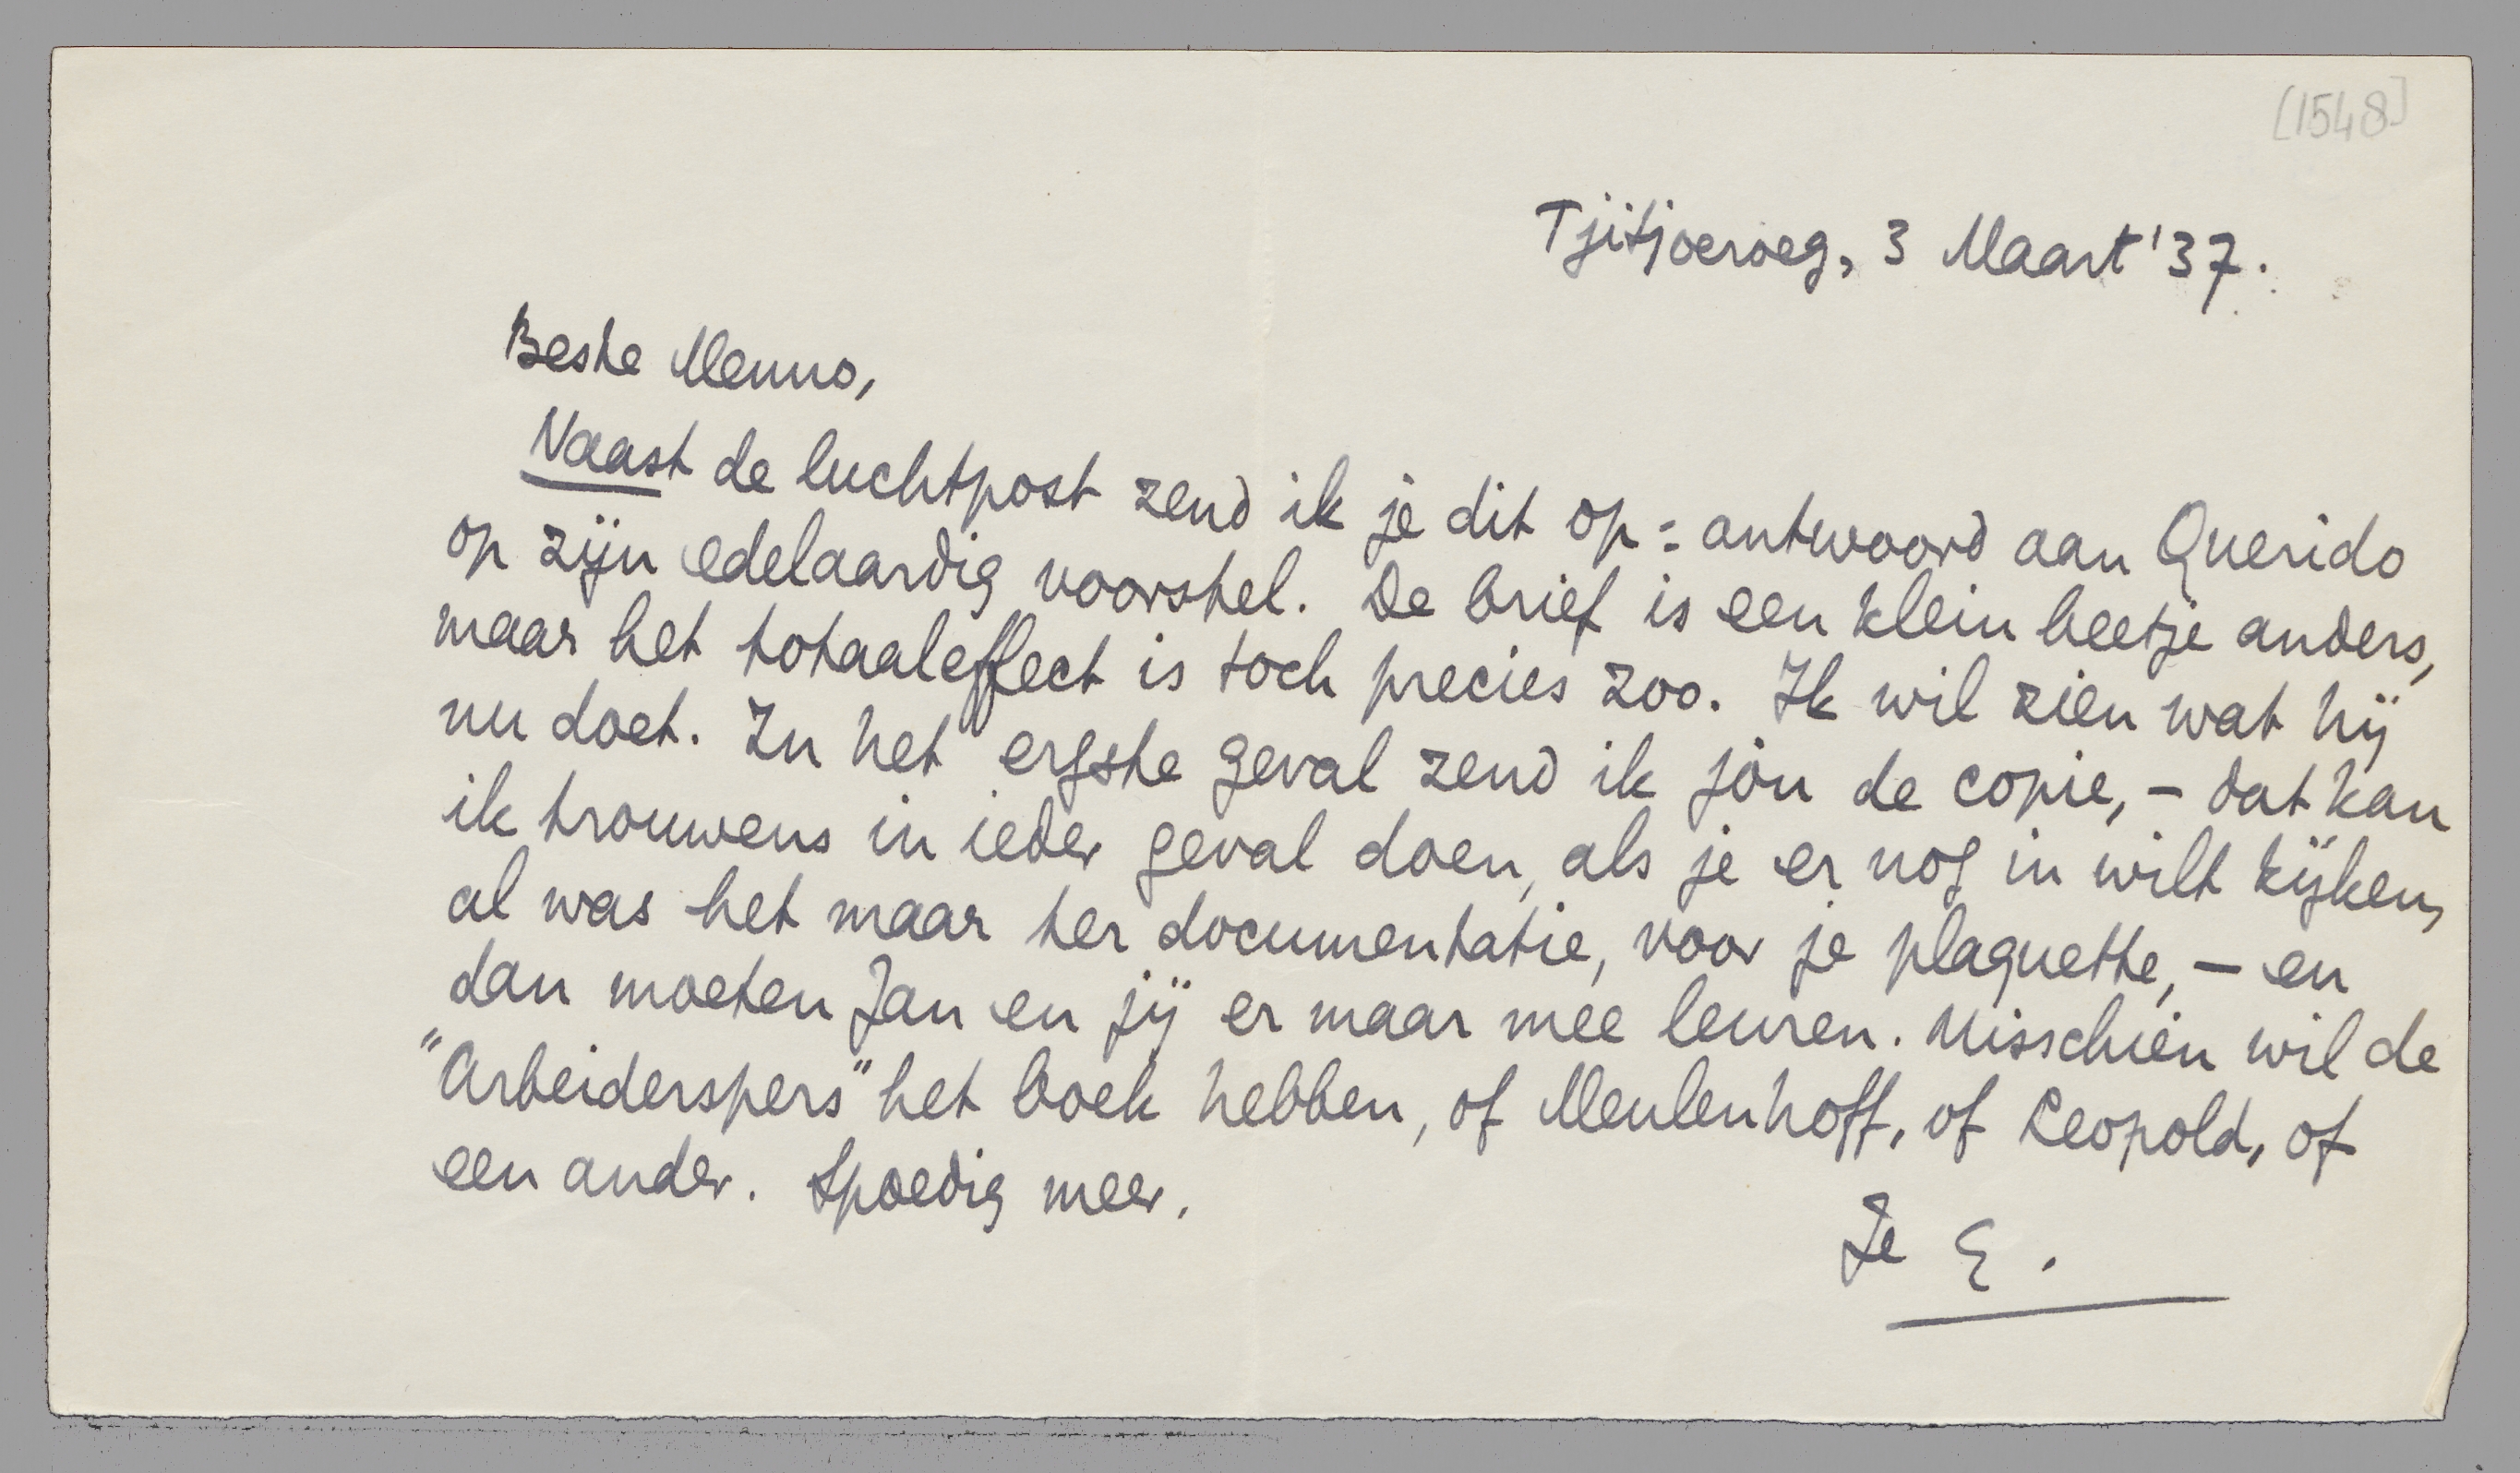 [1548]
Tjitjoeroeg, 3 Maart '37.
Beste Menno,
Naast de luchtpost zend ik je dit op: antwoord aan Querido
op zijn edelaardig voorstel. De brief is een klein beetje anders,
maar het totaaleffect is toch precies zoo. Ik wil zien wat hij
nu doet. In het ergste geval zend ik jòu de copie, – dat kan
ik trouwens in ieder geval doen, als je er nog in wilt kijken,
al was het maar ter documentatie, voor je plaquette, – en
dan moeten Jan en jij er maar mee leuren. Misschien wil de
"Arbeiderspers" het boek hebben, of Meulenhoff, of Leopold, of
een ander. Spoedig meer.
Je E.